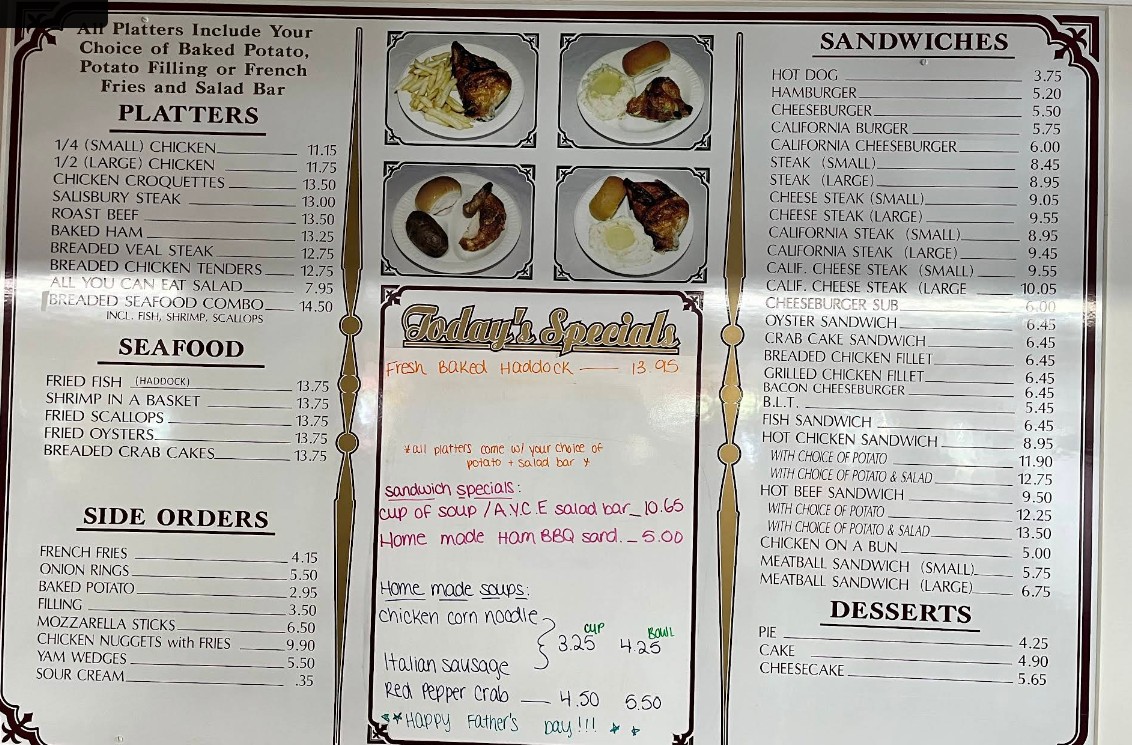 All Platters Include Your
Choice of Baked Potato,
Potato Filling or French
Fries and Salad Bar
PLATTERS
1/4 (SMALL) CHICKEN 11.15
1/2 (LARGE) CHICKEN 11.75
CHICKEN CROQUETTES 13.50
SALISBURY STEAK 13.00
ROAST BEEF 13.50
BAKED HAM 13.25
BREADED VEAL STEAK 12.75
BREADED CHICKEN TENDERS 12.75
ALL YOU CAN EAT SALAD 7.95
BREADED SEAFOOD COMBO 14.50
INCL. FISH, SHRIMP, SCALLOPS
SEAFOOD
FRIED FISH (HADDOCK) 13.75
SHRIMP IN A BASKET 13.75
FRIED SCALLOPS 13.75
FRIED OYSTERS 13.75
BREADED CRAB CAKES 13.75
SIDE ORDERS
FRENCH FRIES 4.15
ONION RINGS 5.50
BAKED POTATO 2.95
FILLING 3.50
MOZZARELLA STICKS 6.50
CHICKEN NUGGETS with FRIES 9.90
YAM WEDGES 5.50
SOUR CREAM .35
Today's Specials
Fresh Baked Haddock — 13.95
*all platters come w/ your choice of
potato + salad bar *
sandwich specials:
cup of soup / A.Y.C.E salad bar_ 10.65
Home made Ham BBQ sand. _ 5.00
Home made soups:
chicken corn noodle
CUP BOWL
3.25 4.25
Italian sausage
Red Pepper Crab — 4.50 5.50
**Happy Father's Day!!! * *
SANDWICHES
HOT DOG 3.75
HAMBURGER 5.20
CHEESEBURGER 5.50
CALIFORNIA BURGER 5.75
CALIFORNIA CHEESEBURGER 6.00
STEAK (SMALL) 8.45
STEAK (LARGE) 8.95
CHEESE STEAK (SMALL) 9.05
CHEESE STEAK (LARGE) 9.55
CALIFORNIA STEAK (SMALL) 8.95
CALIFORNIA STEAK (LARGE) 9.45
CALIF. CHEESE STEAK (SMALL) 9.55
CALIF. CHEESE STEAK (LARGE 10.05
CHEESEBURGER SUB 6.00
OYSTER SANDWICH 6.45
CRAB CAKE SANDWICH 6.45
BREADED CHICKEN FILLET 6.45
GRILLED CHICKEN FILLET 6.45
BACON CHEESEBURGER 6.45
B.L.T. 5.45
FISH SANDWICH 6.45
HOT CHICKEN SANDWICH 8.95
WITH CHOICE OF POTATO 11.90
WITH CHOICE OF POTATO & SALAD 12.75
HOT BEEF SANDWICH 9.50
WITH CHOICE OF POTATO 12.25
WITH CHOICE OF POTATO & SALAD 13.50
CHICKEN ON A BUN 5.00
MEATBALL SANDWICH (SMALL) 5.75
MEATBALL SANDWICH (LARGE) 6.75
DESSERTS
PIE 4.25
CAKE 4.90
CHEESECAKE 5.65